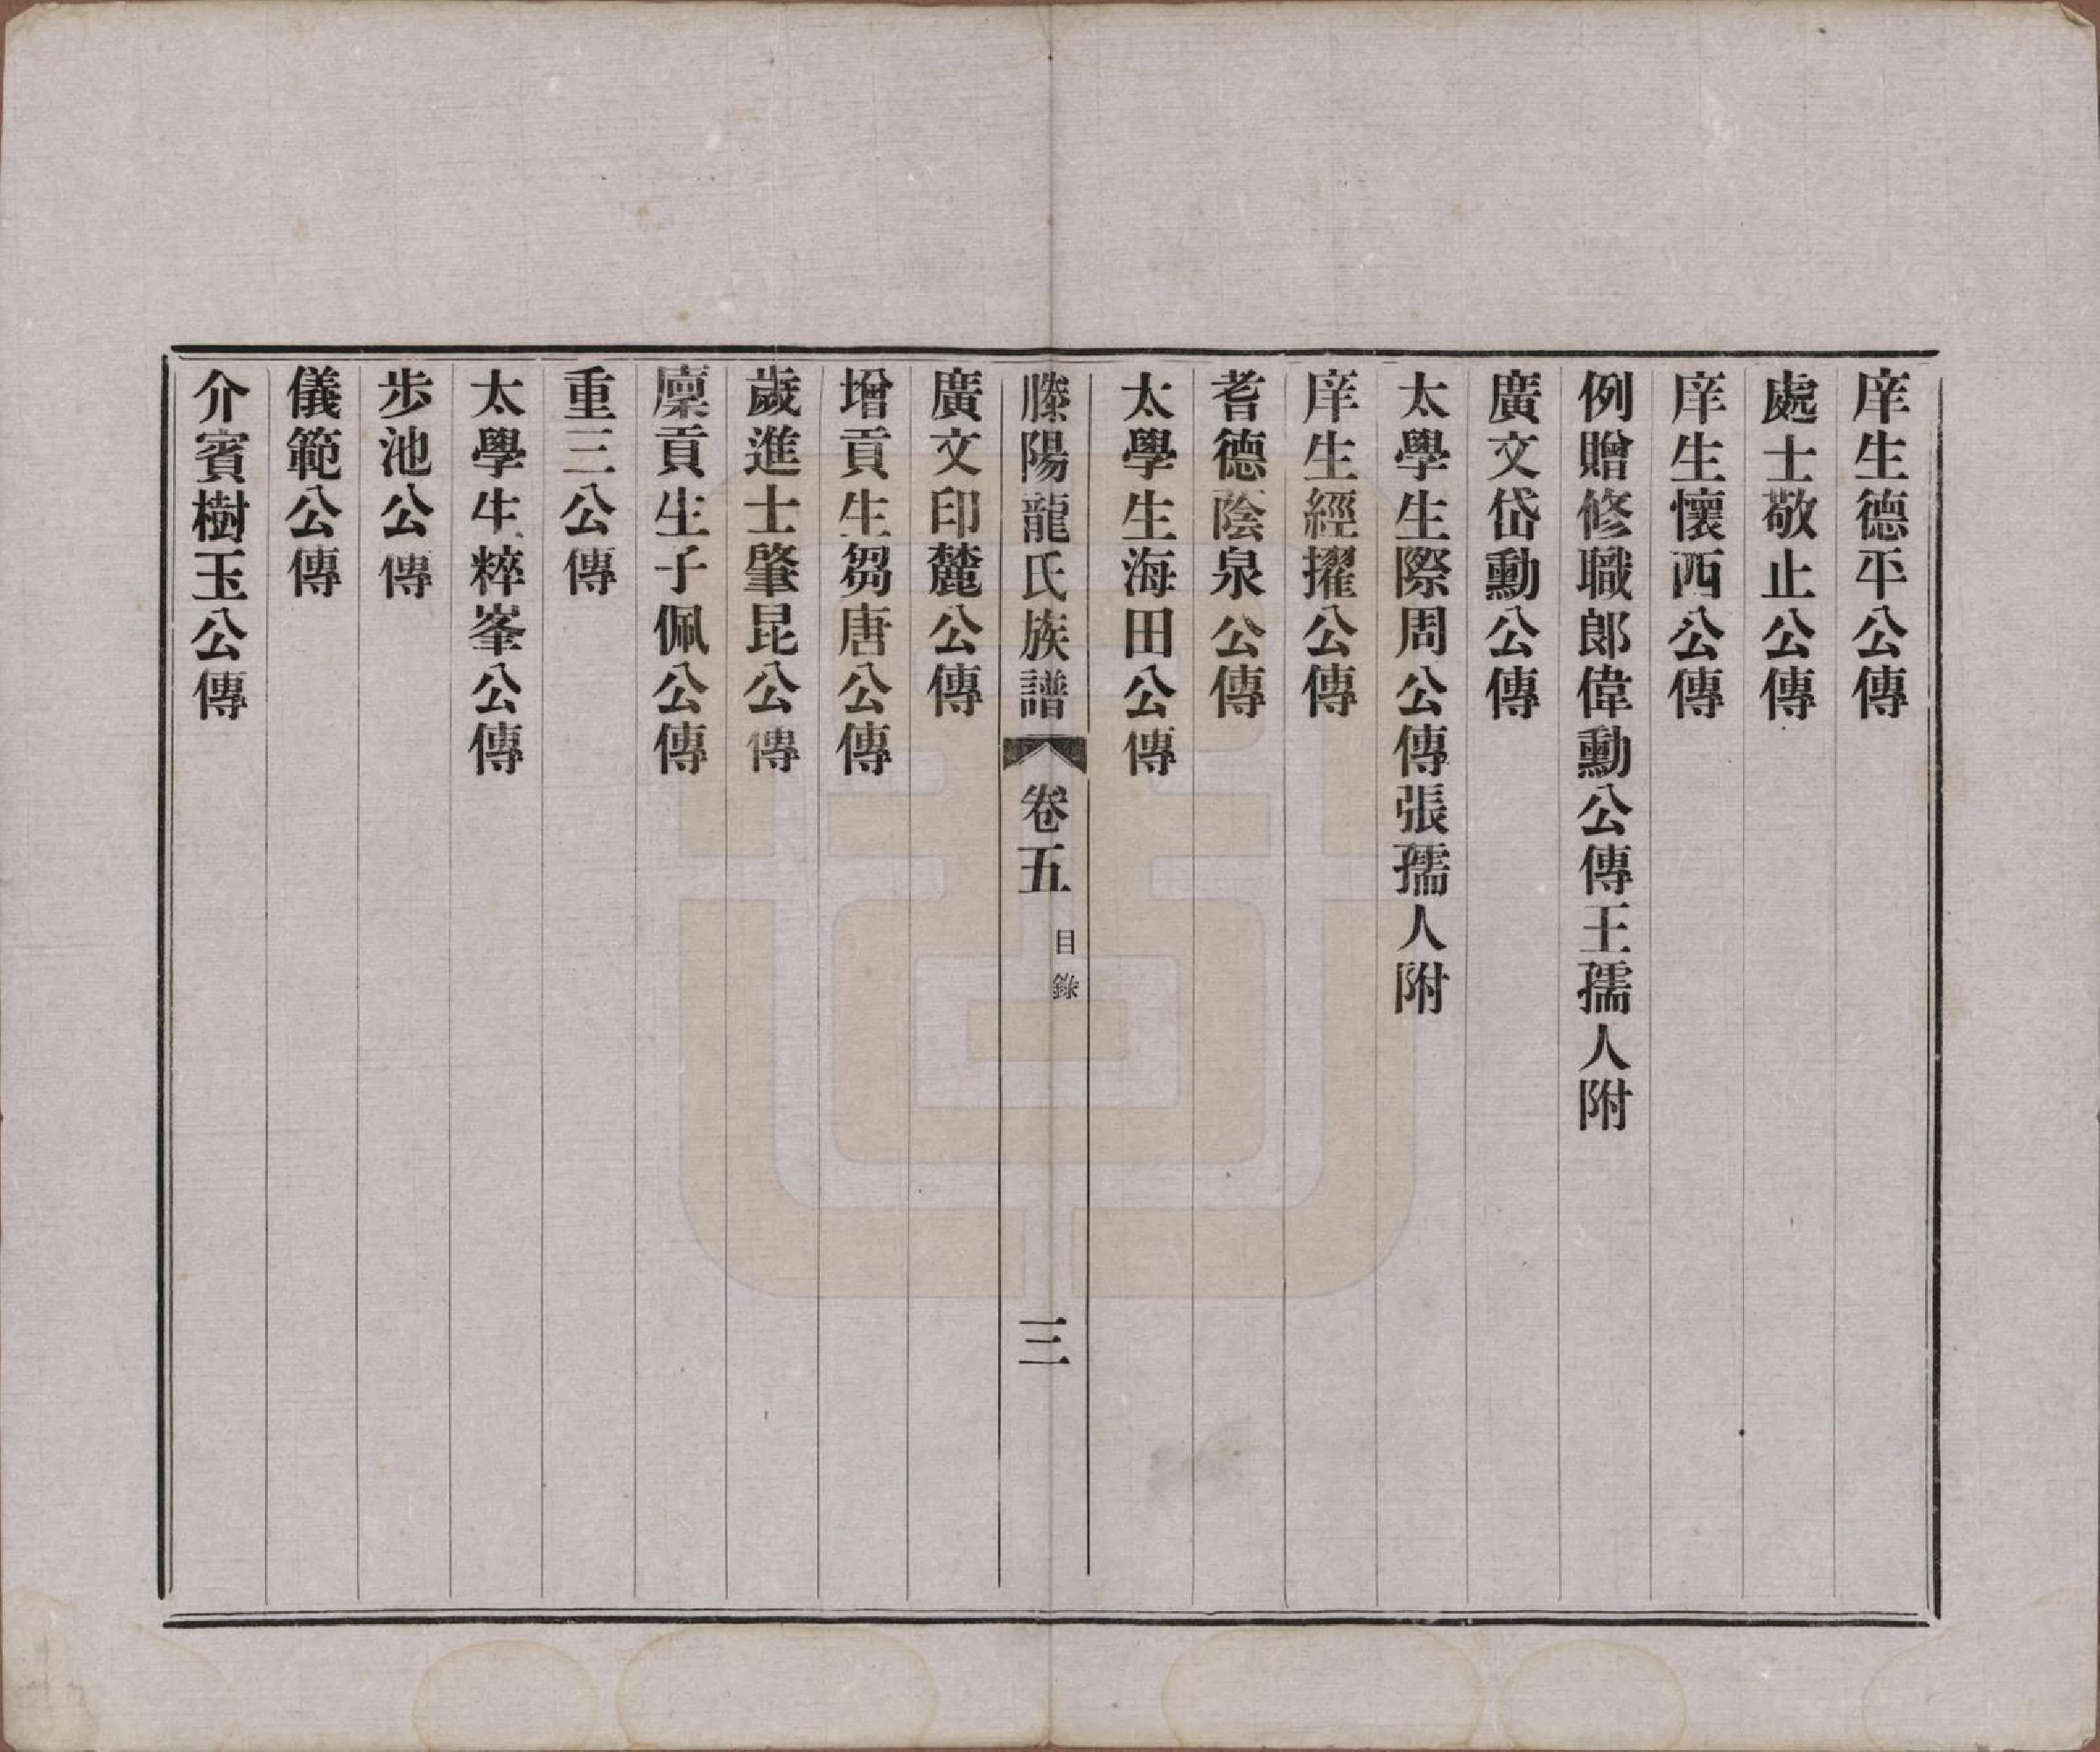 庠生德平公傳
處士敬止公傳
庠生懷西公傳
例贈修職郎偉勳公傳王孺人附
廣文岱勳公傳
太學生際周公傳張孺人附
庠生經擢公傳
耆德陰泉公傳
太學生海田公傳
滕陽龍氏族譜 卷五 目錄 三
廣文印麓公傳
增貢生芻唐公傳
歲進士肇昆公傳
廩貢生子佩公傳
重三公傳
太學生粹峯公傳
步池公傳
儀範公傳
介賓樹玉公傳